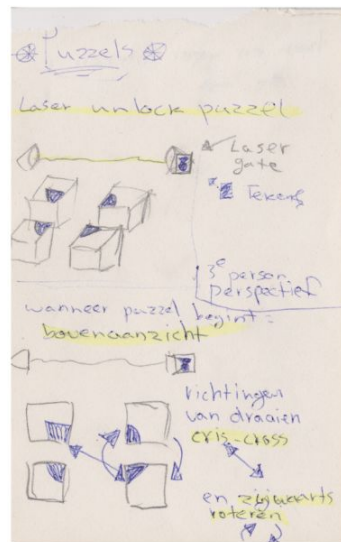 Puzzels
Laser unlock puzzel
Laser
gate
Tekens
3e person
perspectief
wanneer puzzel begint:
bovenaanzicht
richtingen
van draaien
cris-cross
en zijwaarts
roteren